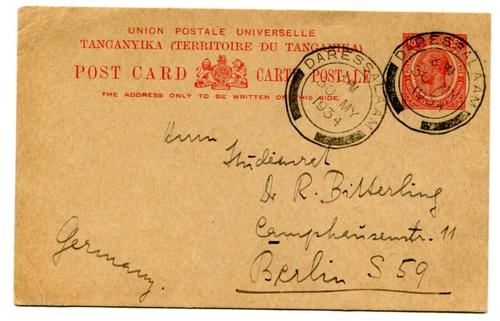 UNION POSTALE UNIVERSELLE
TANGANYIKA (TERRITOIRE DU TANGANIKA)
POST CARD CARTE POSTALE
THE ADDRESS ONLY TO BE WRITTEN ON THIS SIDE.
DARESSALAAM
30 MY
1934
DARESSALAAM
1934
Herrn
Studienrat
Dr R. Bitterling
Camphausenstr. 11
Berlin S 59
Germany.